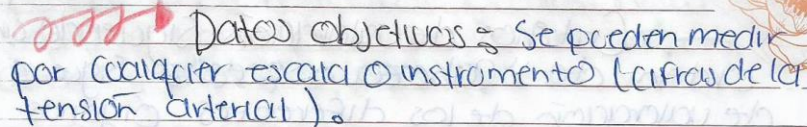 Datos objetivos: Se pueden medir
por cualquier escala o instrumento (cifras de la
tensión arterial).